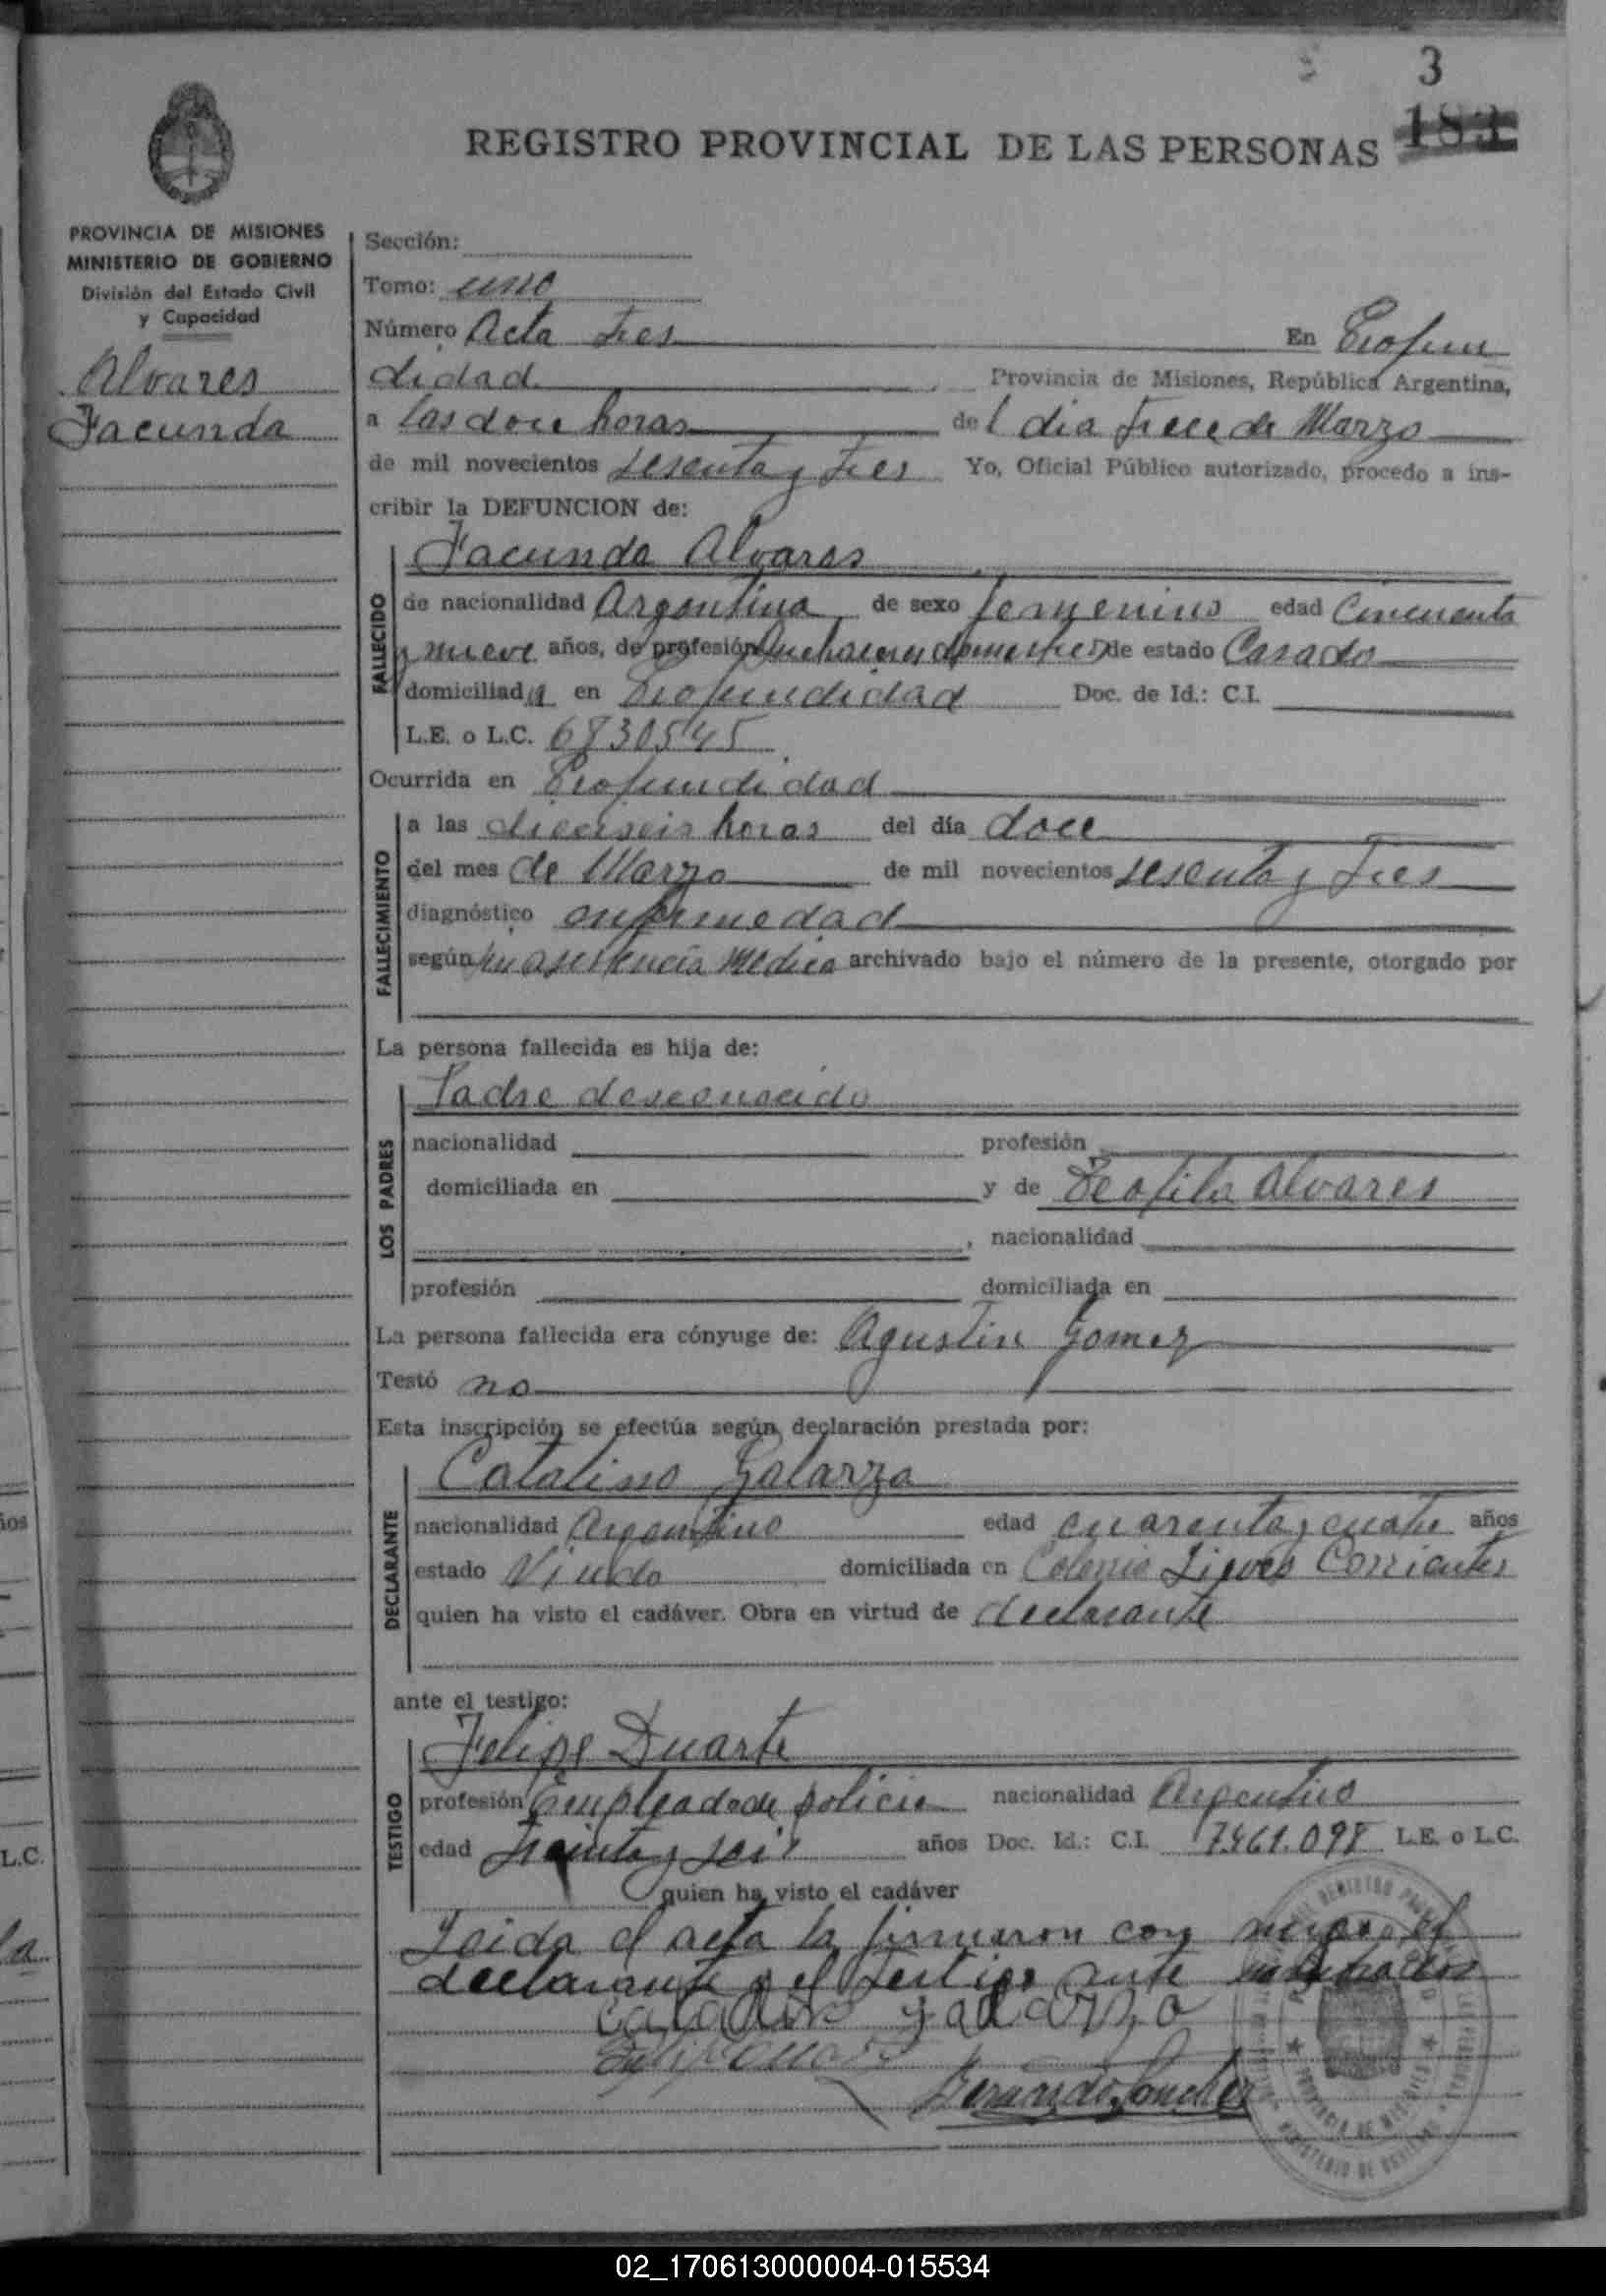 3
183
REGISTRO PROVINCIAL DE LAS PERSONAS
PROVINCIA DE MISIONES
MINISTERIO DE GOBIERNO
División del Estado Civil
y Capacidad
Alvares
Facunda
Sección:
Tomo: uno
Número Acta tres En Profun
didad Provincia de Misiones, República Argentina,
a las doce horas del dia trece de Marzo
de mil novecientos sesenta y tres Yo, Oficial Público autorizado, procedo a ins-
cribir la DEFUNCION de:
FALLECIDO
Facunda Alvares
de nacionalidad Argentina de sexo femenino edad Cincuenta
y nueve años, de profesión Quehaceres domesticos de estado Casada
domiciliada en Profundidad Doc. de Id.: C.I.
L.E. o L.C. 6830545
Ocurrida en Profundidad
FALLECIMIENTO
a las dieciseis horas del día doce
del mes de Marzo de mil novecientos sesenta y tres
diagnóstico enfermedad
según sin asistencia Medica archivado bajo el número de la presente, otorgado por
La persona fallecida es hija de:
LOS PADRES
Padre desconocido
nacionalidad profesión
domiciliada en y de Teofila Alvares
, nacionalidad
profesión domiciliada en
La persona fallecida era cónyuge de: Agustin Gomez
Testó no
Esta inscripción se efectúa según declaración prestada por:
DECLARANTE
Catalino Galarza
nacionalidad Argentino edad cuarenta y cuatro años
estado Viudo domiciliada en Colonia Corrientes
quien ha visto el cadáver. Obra en virtud de declarante
ante el testigo:
TESTIGO
Felipe Duarte
profesión Empleado de policia nacionalidad Argentino
edad treinta y seis años Doc. Id.: C.I. 7.461.098 L.E. o L.C.
quien ha visto el cadáver
Leida el acta la firmaron con migo el
declarante y el testigo ante
catalino galarza
Bernardo Sanchez
REGISTRO PROVINCIAL DE LAS PERSONAS
PROVINCIA DE MISIONES
MINISTERIO DE GOBIERNO
ños
L.C.
la
02_170613000004-015534